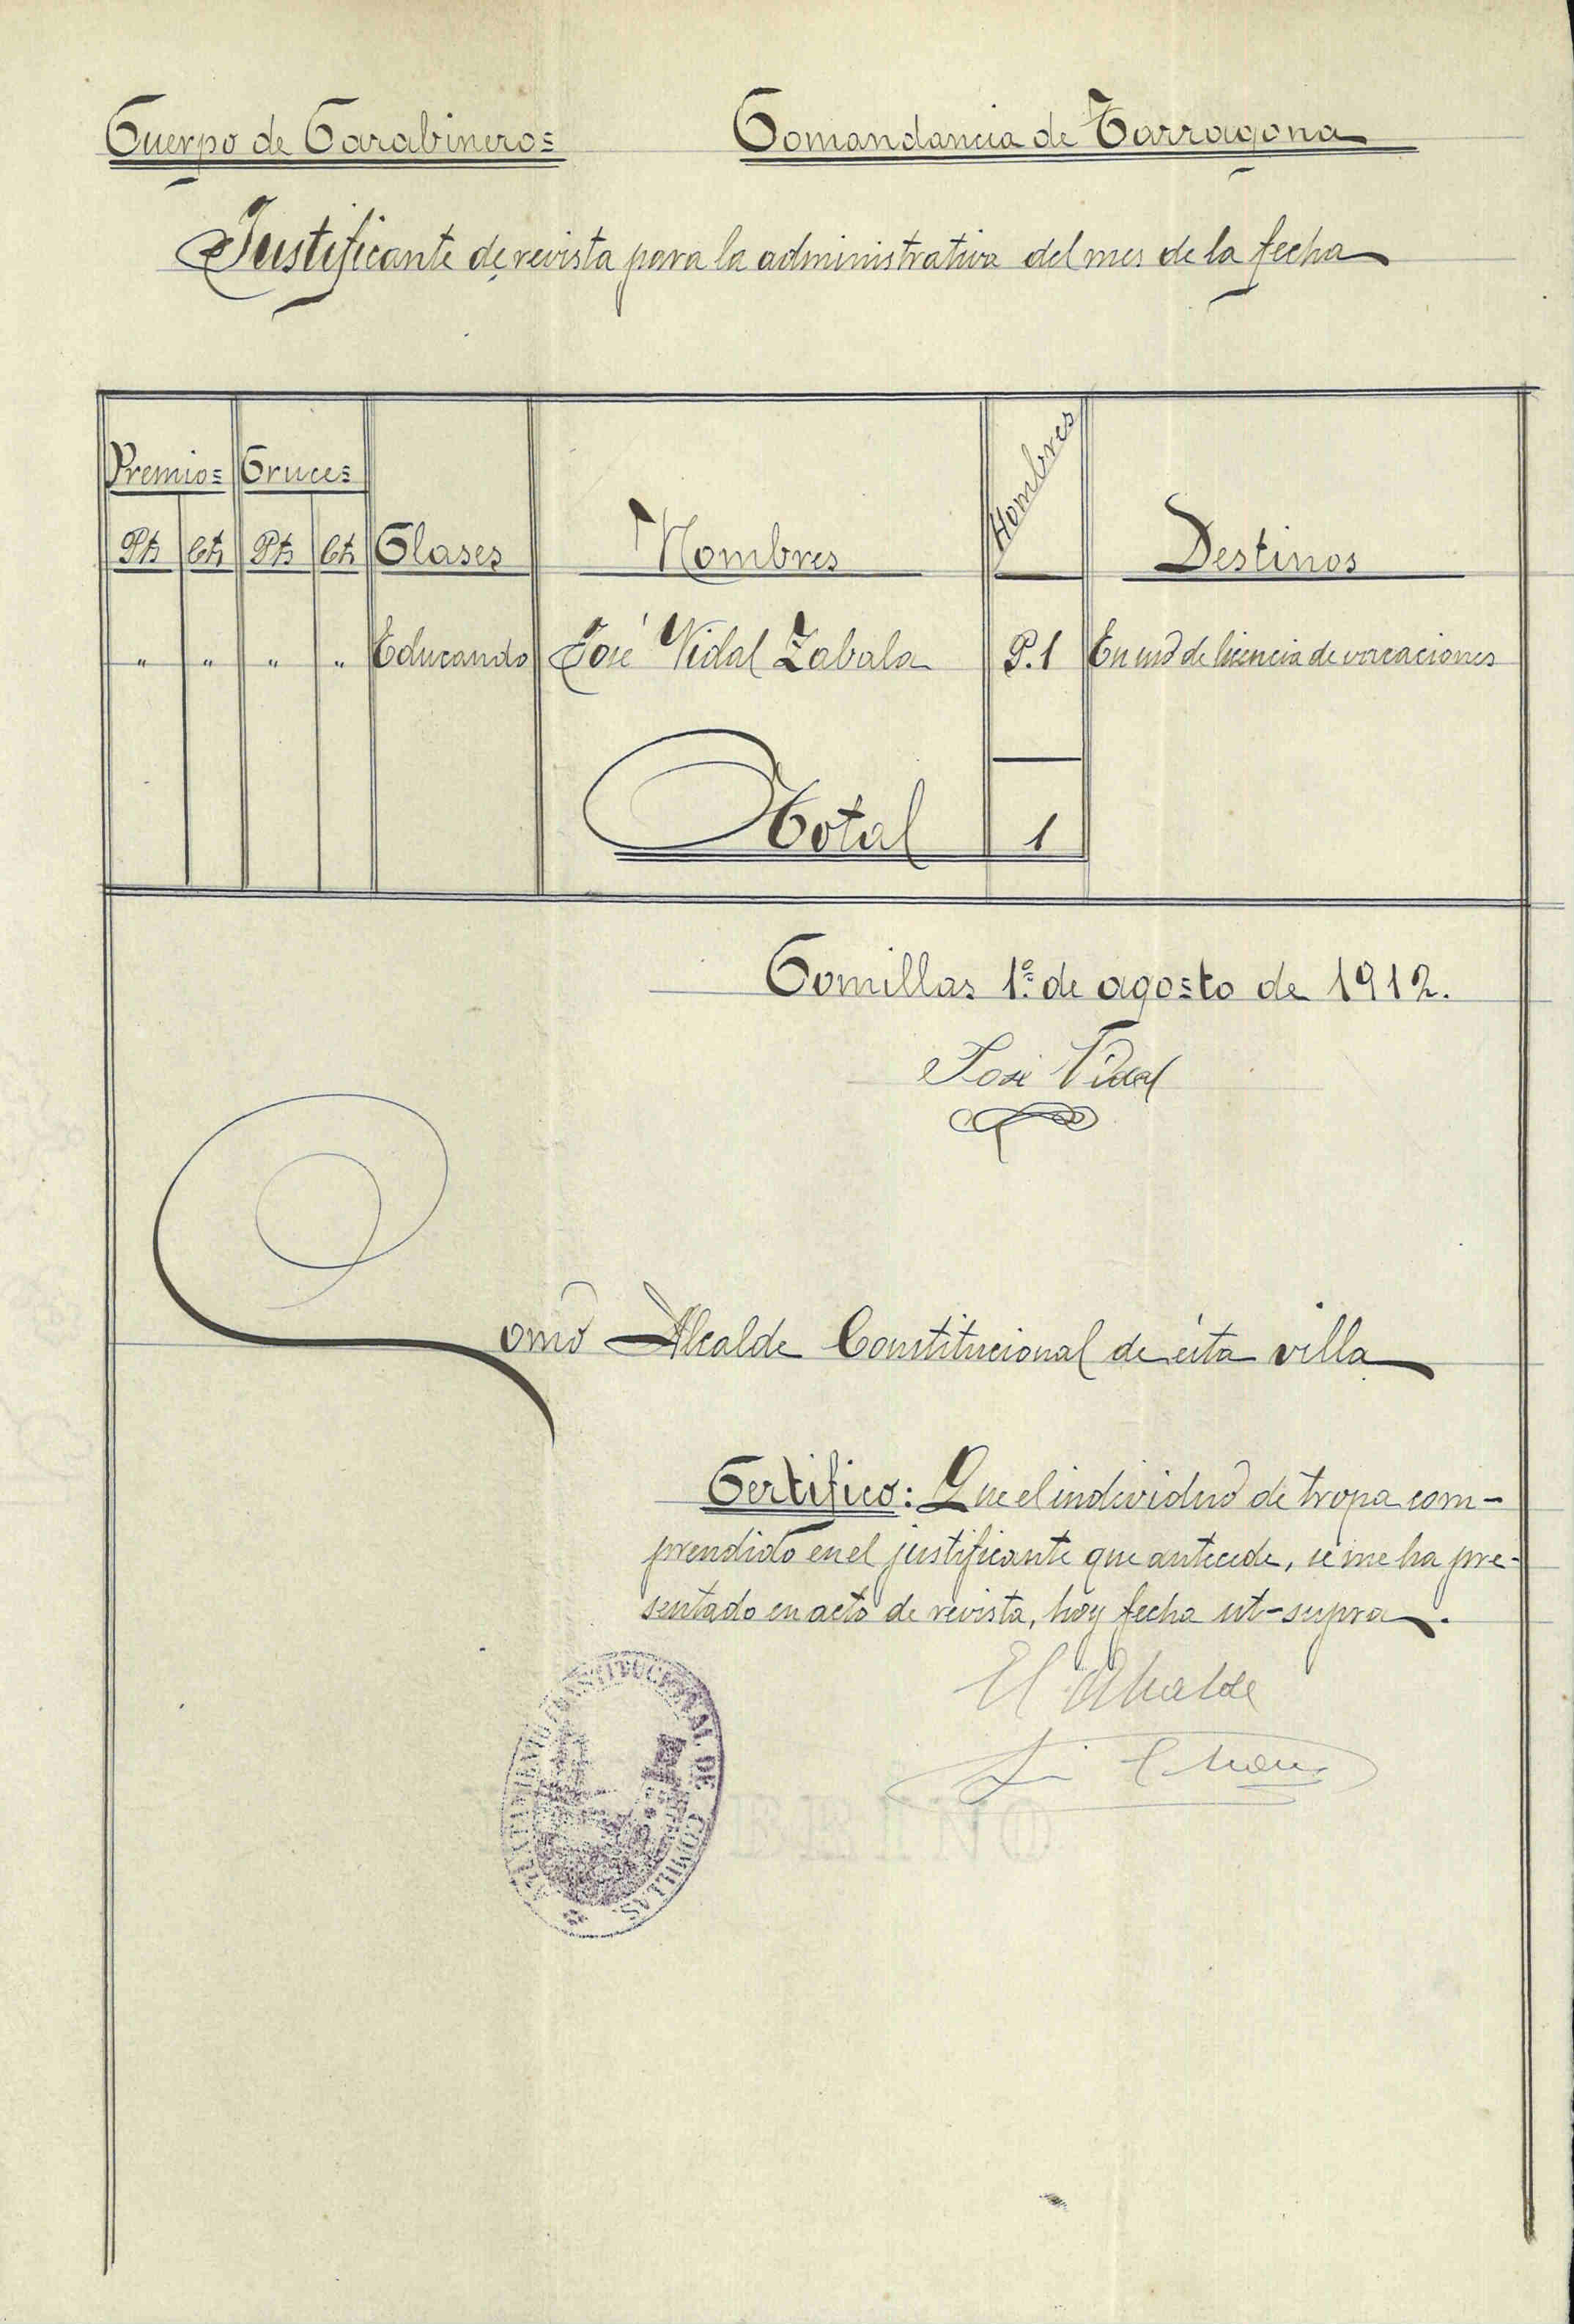 Cuerpo de Carabineros Comandancia de Tarragona
Justificante de revista para la administrativa del mes de la fecha
Premios Cruces Hombres
Pts Cts Pts Cts Clases Nombres Destinos
" " " " Educando José Vidal Zabala P. 1 En uso de licencia de vacaciones
Total 1
Comillas 1º de agosto de 1912.
José Vidal
Como Alcalde Constitucional de ésta villa
Certifico: Que el individuo de tropa com-
prendido en el justificante que antecede, se me ha pre-
sentado en acto de revista, hoy fecha ut-supra.
El Alcalde
AYUNTAMIENTO CONSTITUCIONAL DE COMILLAS